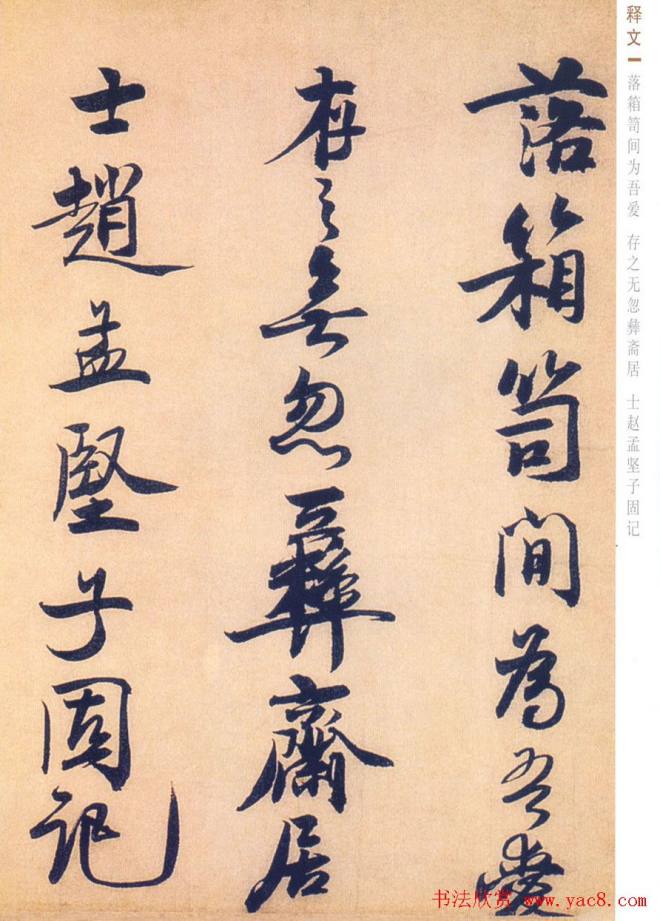 落箱笥間為吾愛
存之無忽彞齋居
士趙孟堅子固記
释文
落箱笥间为吾爱 存之无忽彝斋居 士赵孟坚子固记
书法欣赏 www.yac8.com